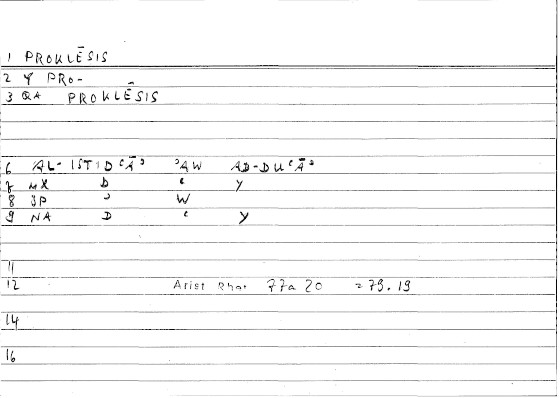 1 PROKLĒSIS
2 Y PRO-
3 QA PROKLĒSIS
6 ʾAL-ISTIDʿĀʾ ʾAW AD-DUʿĀʾ
7 MX D ʿ Y
8 3P ʾ W
9 NA D ʿ Y
11
12 Arist Rhet 77a 20 = 79.19
14
16